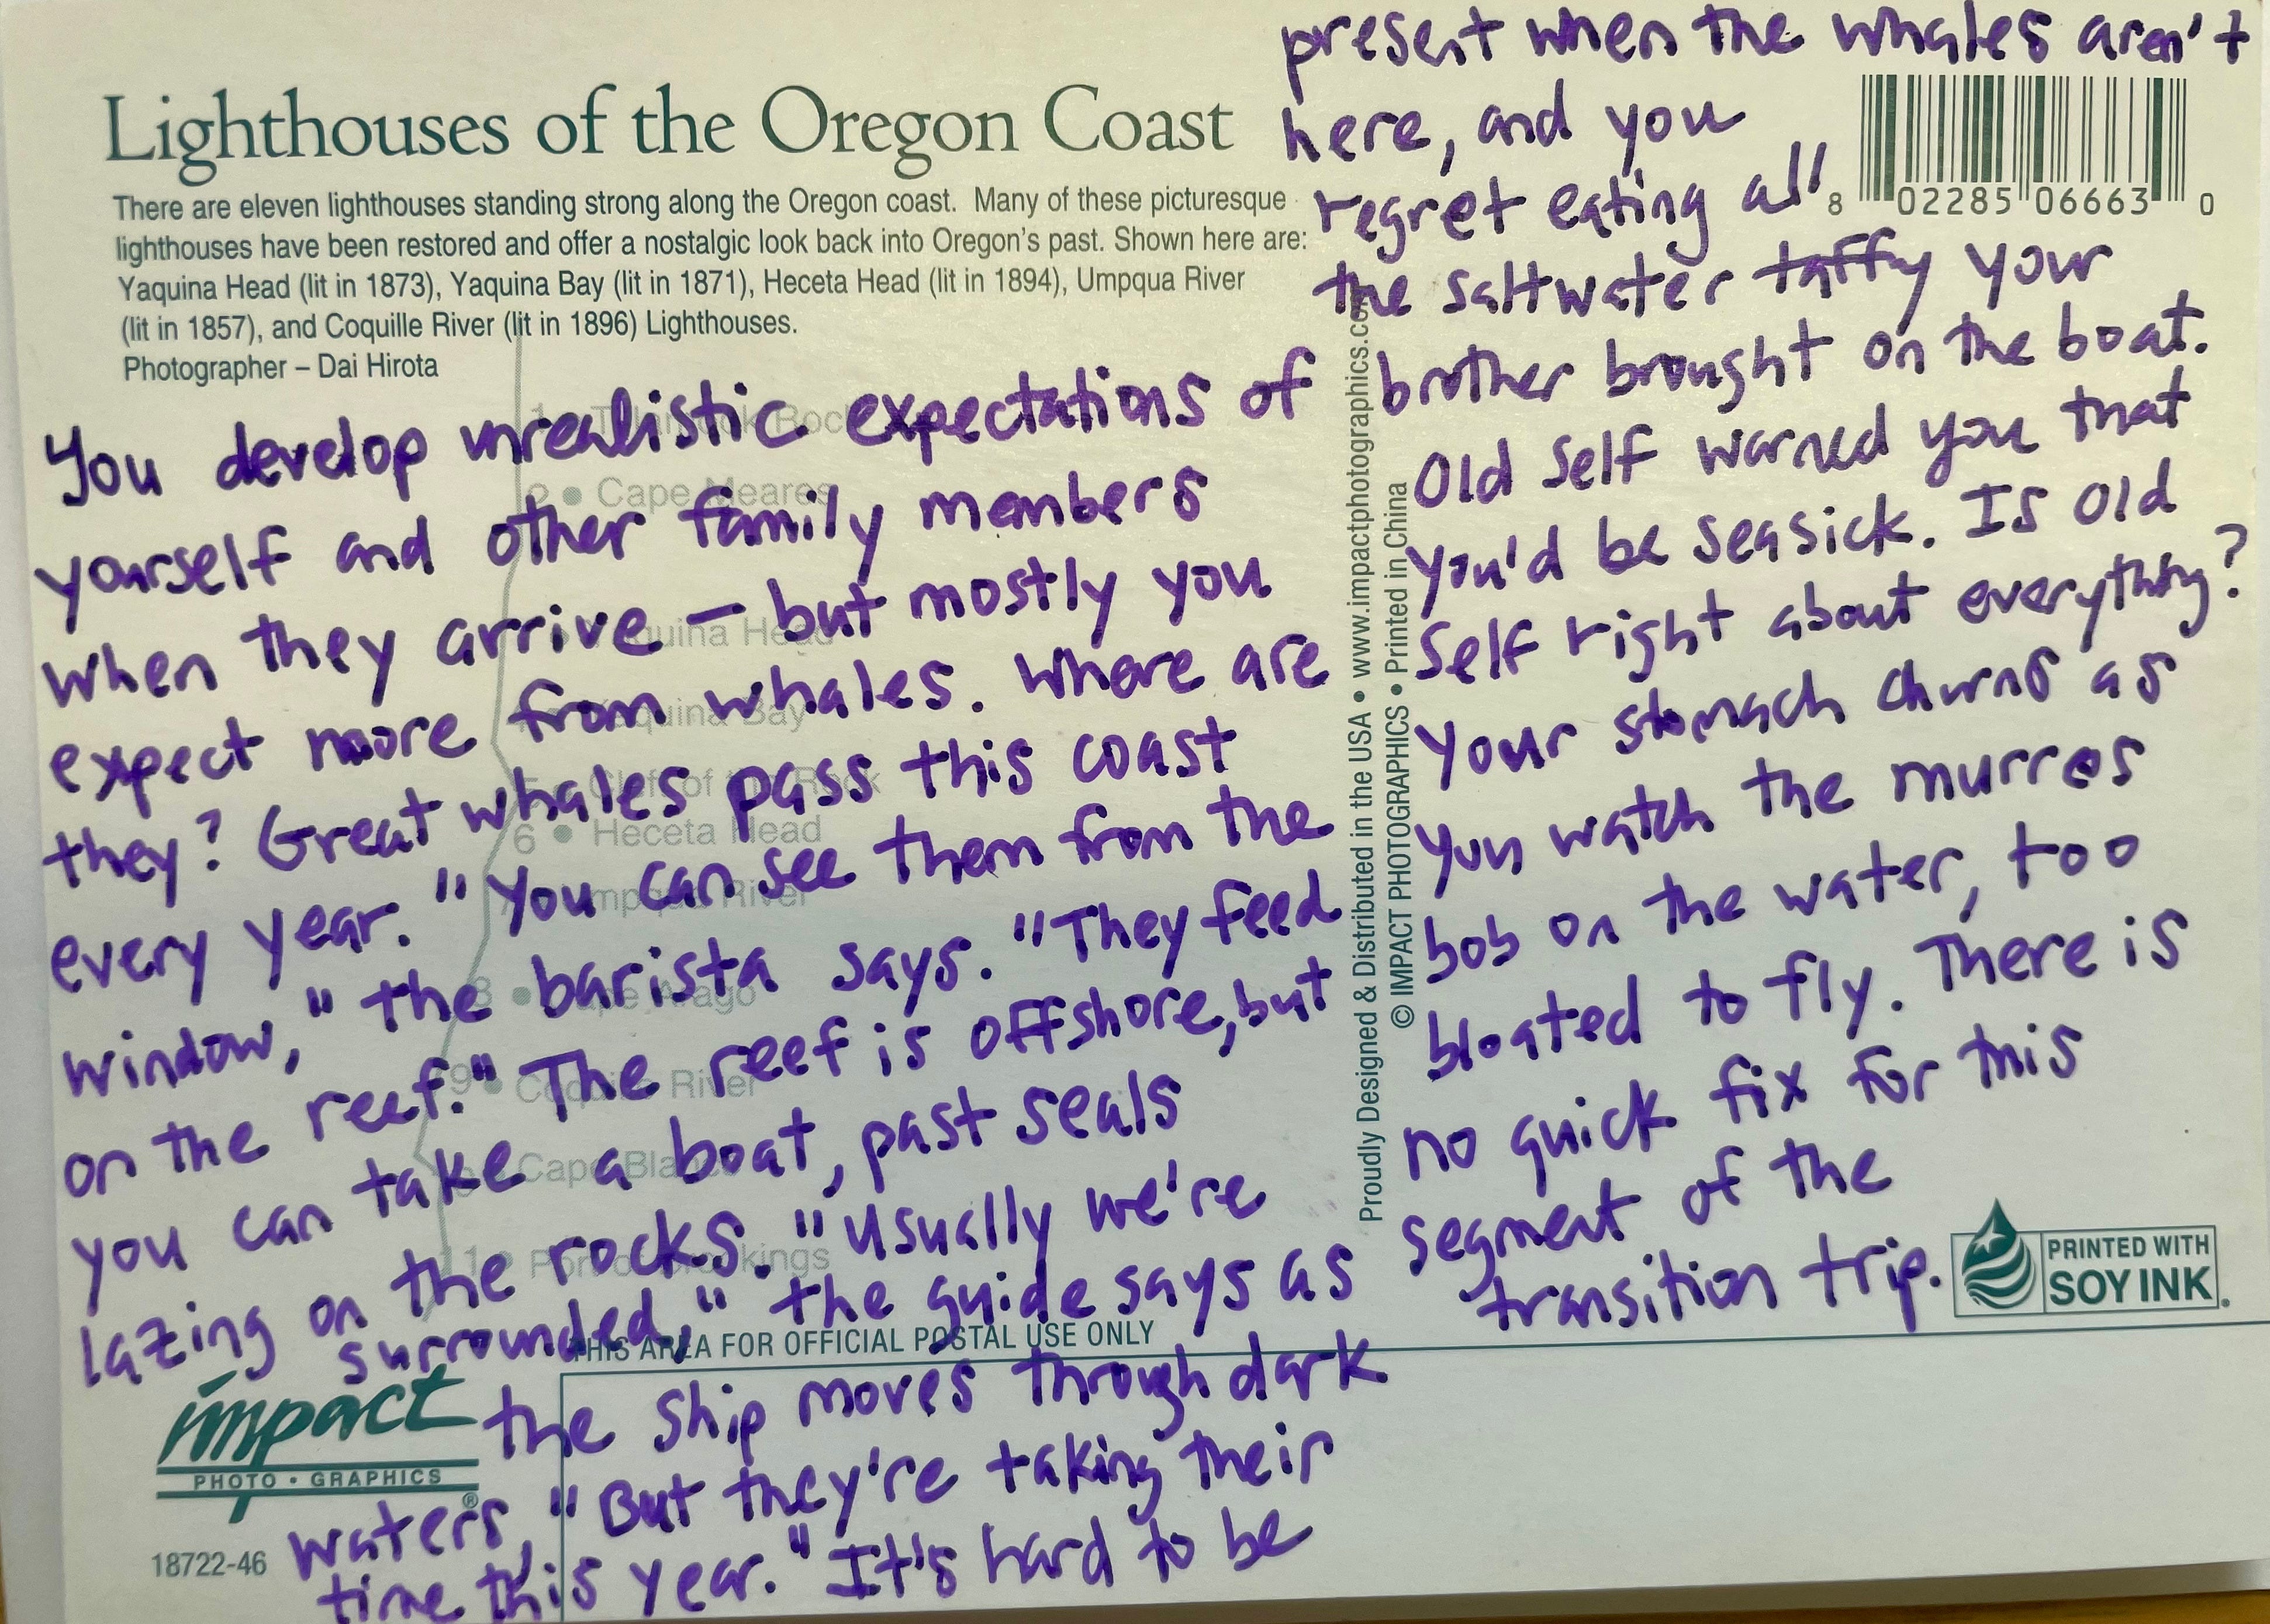 Lighthouses of the Oregon Coast
There are eleven lighthouses standing strong along the Oregon coast. Many of these picturesque
lighthouses have been restored and offer a nostalgic look back into Oregon's past. Shown here are:
Yaquina Head (lit in 1873), Yaquina Bay (lit in 1871), Heceta Head (lit in 1894), Umpqua River
(lit in 1857), and Coquille River (lit in 1896) Lighthouses.
Photographer – Dai Hirota
You develop unrealistic expectations of
yourself and other family members
when they arrive – but mostly you
expect more from whales. Where are
they? Great whales pass this coast
every year. "You can see them from the
window," the barista says. "They feed
on the reef." The reef is offshore, but
you can take a boat, past seals
lazing on the rocks. "Usually we're
surrounded," the guide says as
the ship moves through dark
waters, "But they're taking their
time this year." It's hard to be
present when the whales aren't
here, and you
regret eating all
the saltwater taffy your
brother brought on the boat.
Old Self warned you that
you'd be seasick. Is Old
Self right about everything?
Your stomach churns as
you watch the murres
bob on the water, too
bloated to fly. There is
no quick fix for this
segment of the
transition trip.
2 • Cape Meares
6 • Heceta Head
Umpqua River
8 • Cape Arago
9 • Coquille River
Cape Blanco
11 • Port of Brookings
8 02285 06663 0
Proudly Designed & Distributed in the USA • www.impactphotographics.com
© IMPACT PHOTOGRAPHICS • Printed in China
PRINTED WITH
SOY INK
THIS AREA FOR OFFICIAL POSTAL USE ONLY
impact
PHOTO • GRAPHICS ®
18722-46